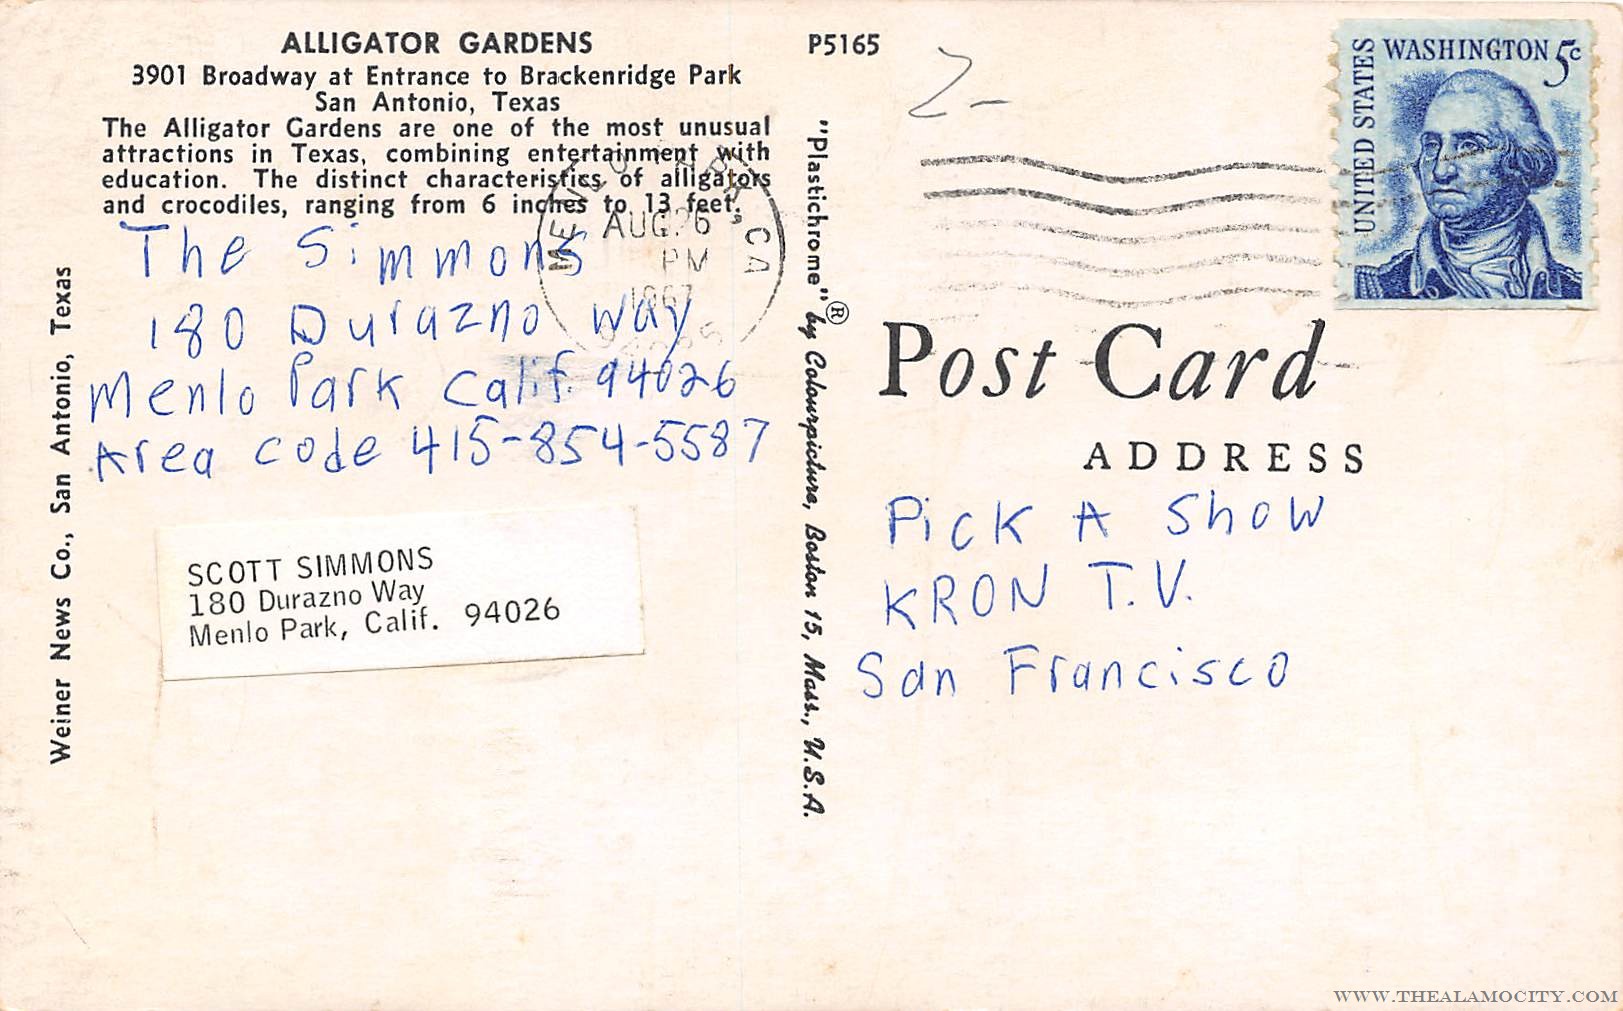 ALLIGATOR GARDENS
3901 Broadway at Entrance to Brackenridge Park
San Antonio, Texas
The Alligator Gardens are one of the most unusual
attractions in Texas, combining entertainment with
education. The distinct characteristics of alligators
and crocodiles, ranging from 6 inches to 13 feet.
The Simmons
180 Durazno Way
Menlo Park Calif. 94026
Area code 415-854-5587
SCOTT SIMMONS
180 Durazno Way
Menlo Park, Calif. 94026
Weiner News Co., San Antonio, Texas
MENLO PARK, CA
AUG 26
PM
1967
P5165
2-
"Plastichrome"® by Colourpicture, Boston 15, Mass., U.S.A.
UNITED STATES
WASHINGTON 5c
Post Card
ADDRESS
Pick A Show
KRON T.V.
San Francisco
WWW.THEALAMOCITY.COM